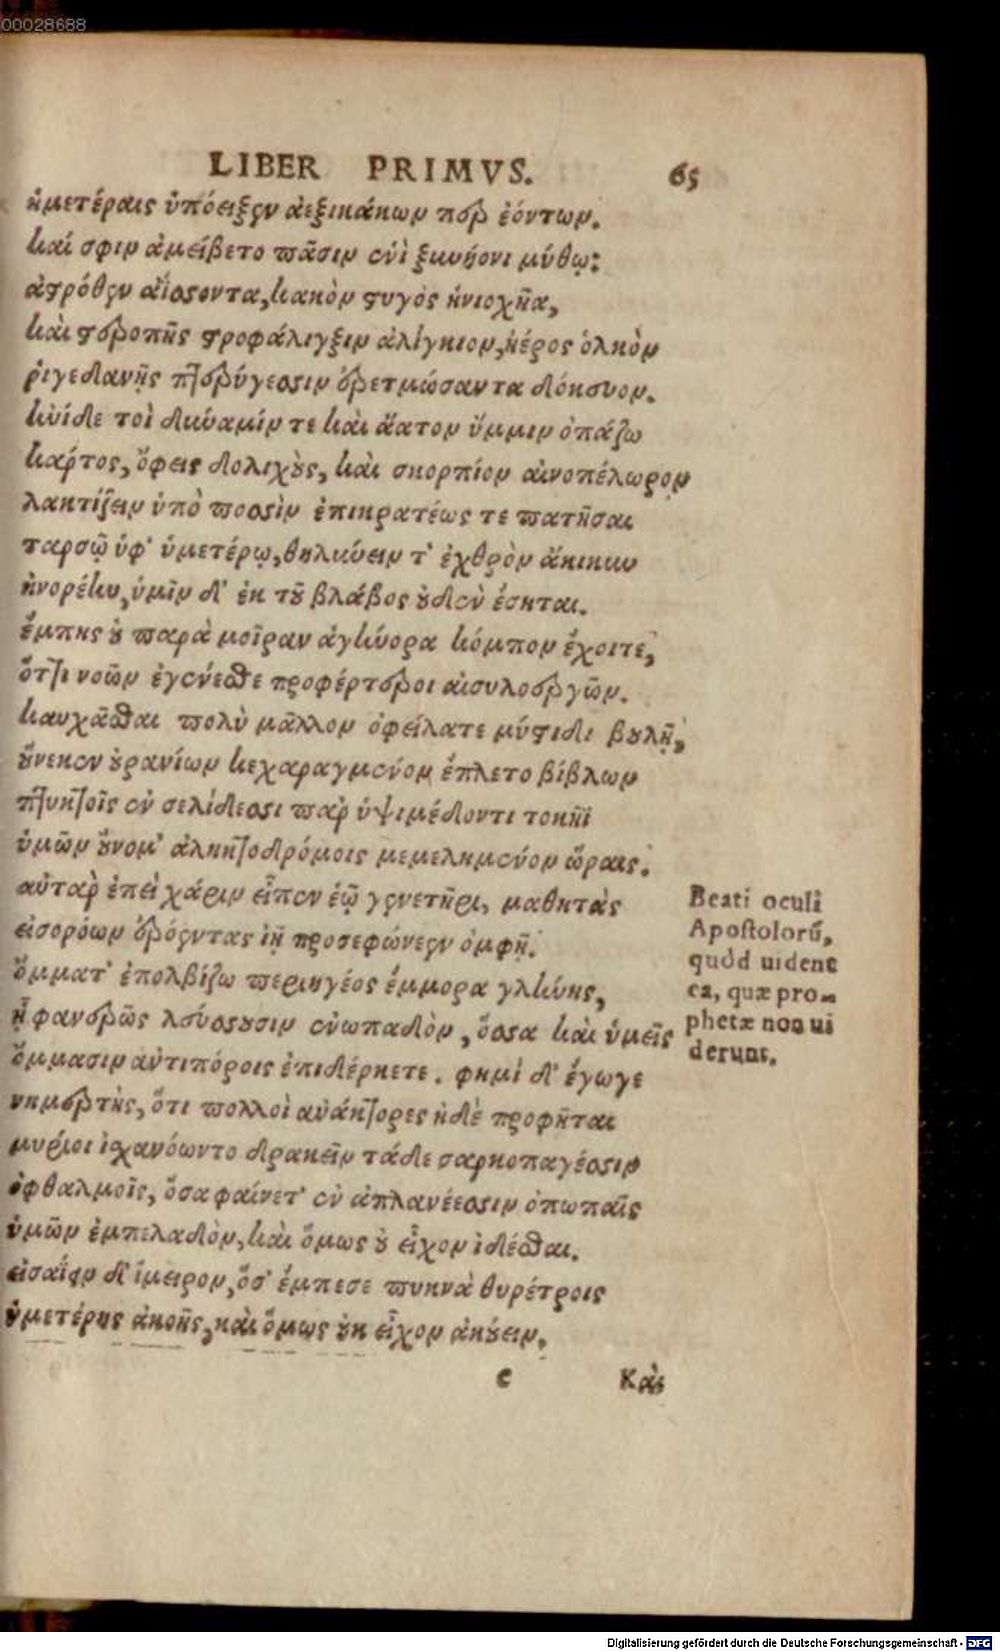 00028688
LIBER PRIMVS. 65
ἡμετέραις ὑπόειξεν ἀεξικάκων περ ἐόντων.
καί σφιν ἀμείβετο πᾶσιν ἐνὶ ξυνήονι μύθῳ:
ἀθρόθεν ἀΐσσοντα, κακὸν στυγὸς ἡνιοχῆα,
καὶ στεροπῆς στροφάλιγξιν ἀλίγκιον, ἠέρος ὁλκὸν
ῥιγεδανῆς πτερύγεσσιν ἐρετμώσαντα δόκευον.
ἠνίδε τοὶ δύναμίν τε καὶ ἄατον ὔμμιν ὀπάζω
κάρτος, ὄφεις δολιχοὺς, καὶ σκορπίον αἰνοπέλωρον
λακτίζειν ὑπὸ ποσσὶν ἐπικρατέως τε πατῆσαι
ταρσῷ ὑφ' ὑμετέρῳ, θηλύνειν τ' ἐχθρὸν ἄκικυν
ἠνορέην, ὑμῖν δ' ἐκ τοῦ βλάβος οὐδὲν ἔσηται.
ἔμπης οὐ παρὰ μοῖραν ἀγήνορα κόμπον ἔχοιτε,
ὅττι νοῶν ἐγένεσθε προφέρτεροι αἰσυλοεργῶν.
καυχᾶσθαι πολὺ μᾶλλον ὀφείλατε μύστιδι βουλῇ,
οὕνεκεν οὐρανίων κεχαραγμένον ἔπλετο βίβλων
πτυκτοῖς ἐν σελίδεσσι παρ' ὑψιμέδοντι τοκῆϊ
ὑμῶν οὔνομ' ἀληκτοδρόμοις μεμελημένον ὥραις.
αὐτὰρ ἐπεὶ χάριν εἶπεν ἑῷ γενετῆρι, μαθητὰς
εἰσορόων ἐρόεντας ἰῇ προσεφώνεεν ὀμφῇ.
ὄμματ' ἐπολβίζω περιηγέος ἔμμορα γλήνης,
ᾗ φανερῶς λεύσουσιν ἐνωπαδὸν, ὅσσα καὶ ὑμεῖς
ὄμμασιν ἀντιπόροις ἐπιδέρκετε. φημὶ δ' ἔγωγε
νημερτὴς, ὅτι πολλοὶ ἀνάκτορες ἠδὲ προφῆται
μυρίοι ἰσχανόωντο δρακεῖν τάδε σαρκοπαγέσσιν
ὀφθαλμοῖς, ὅσα φαίνετ' ἐν ἀπλανέεσσιν ὀπωπαῖς
ὑμῶν ἐμπελαδὸν, καὶ ὅμως οὐ εἶχον ἰδέσθαι.
εἰσαΐειν δ' ἵμειρον, ὅσ' ἔμπεσε πυκνὰ θυρέτροις
ὑμετέρης ἀκοῆς, καὶ ὅμως οὐκ εἶχον ἀκούειν.
e Καὶ
Beati oculi
Apostolorũ,
quòd uident
ea, quæ pro-
phetæ non ui
derunt.
Digitalisierung gefördert durch die Deutsche Forschungsgemeinschaft - DFG